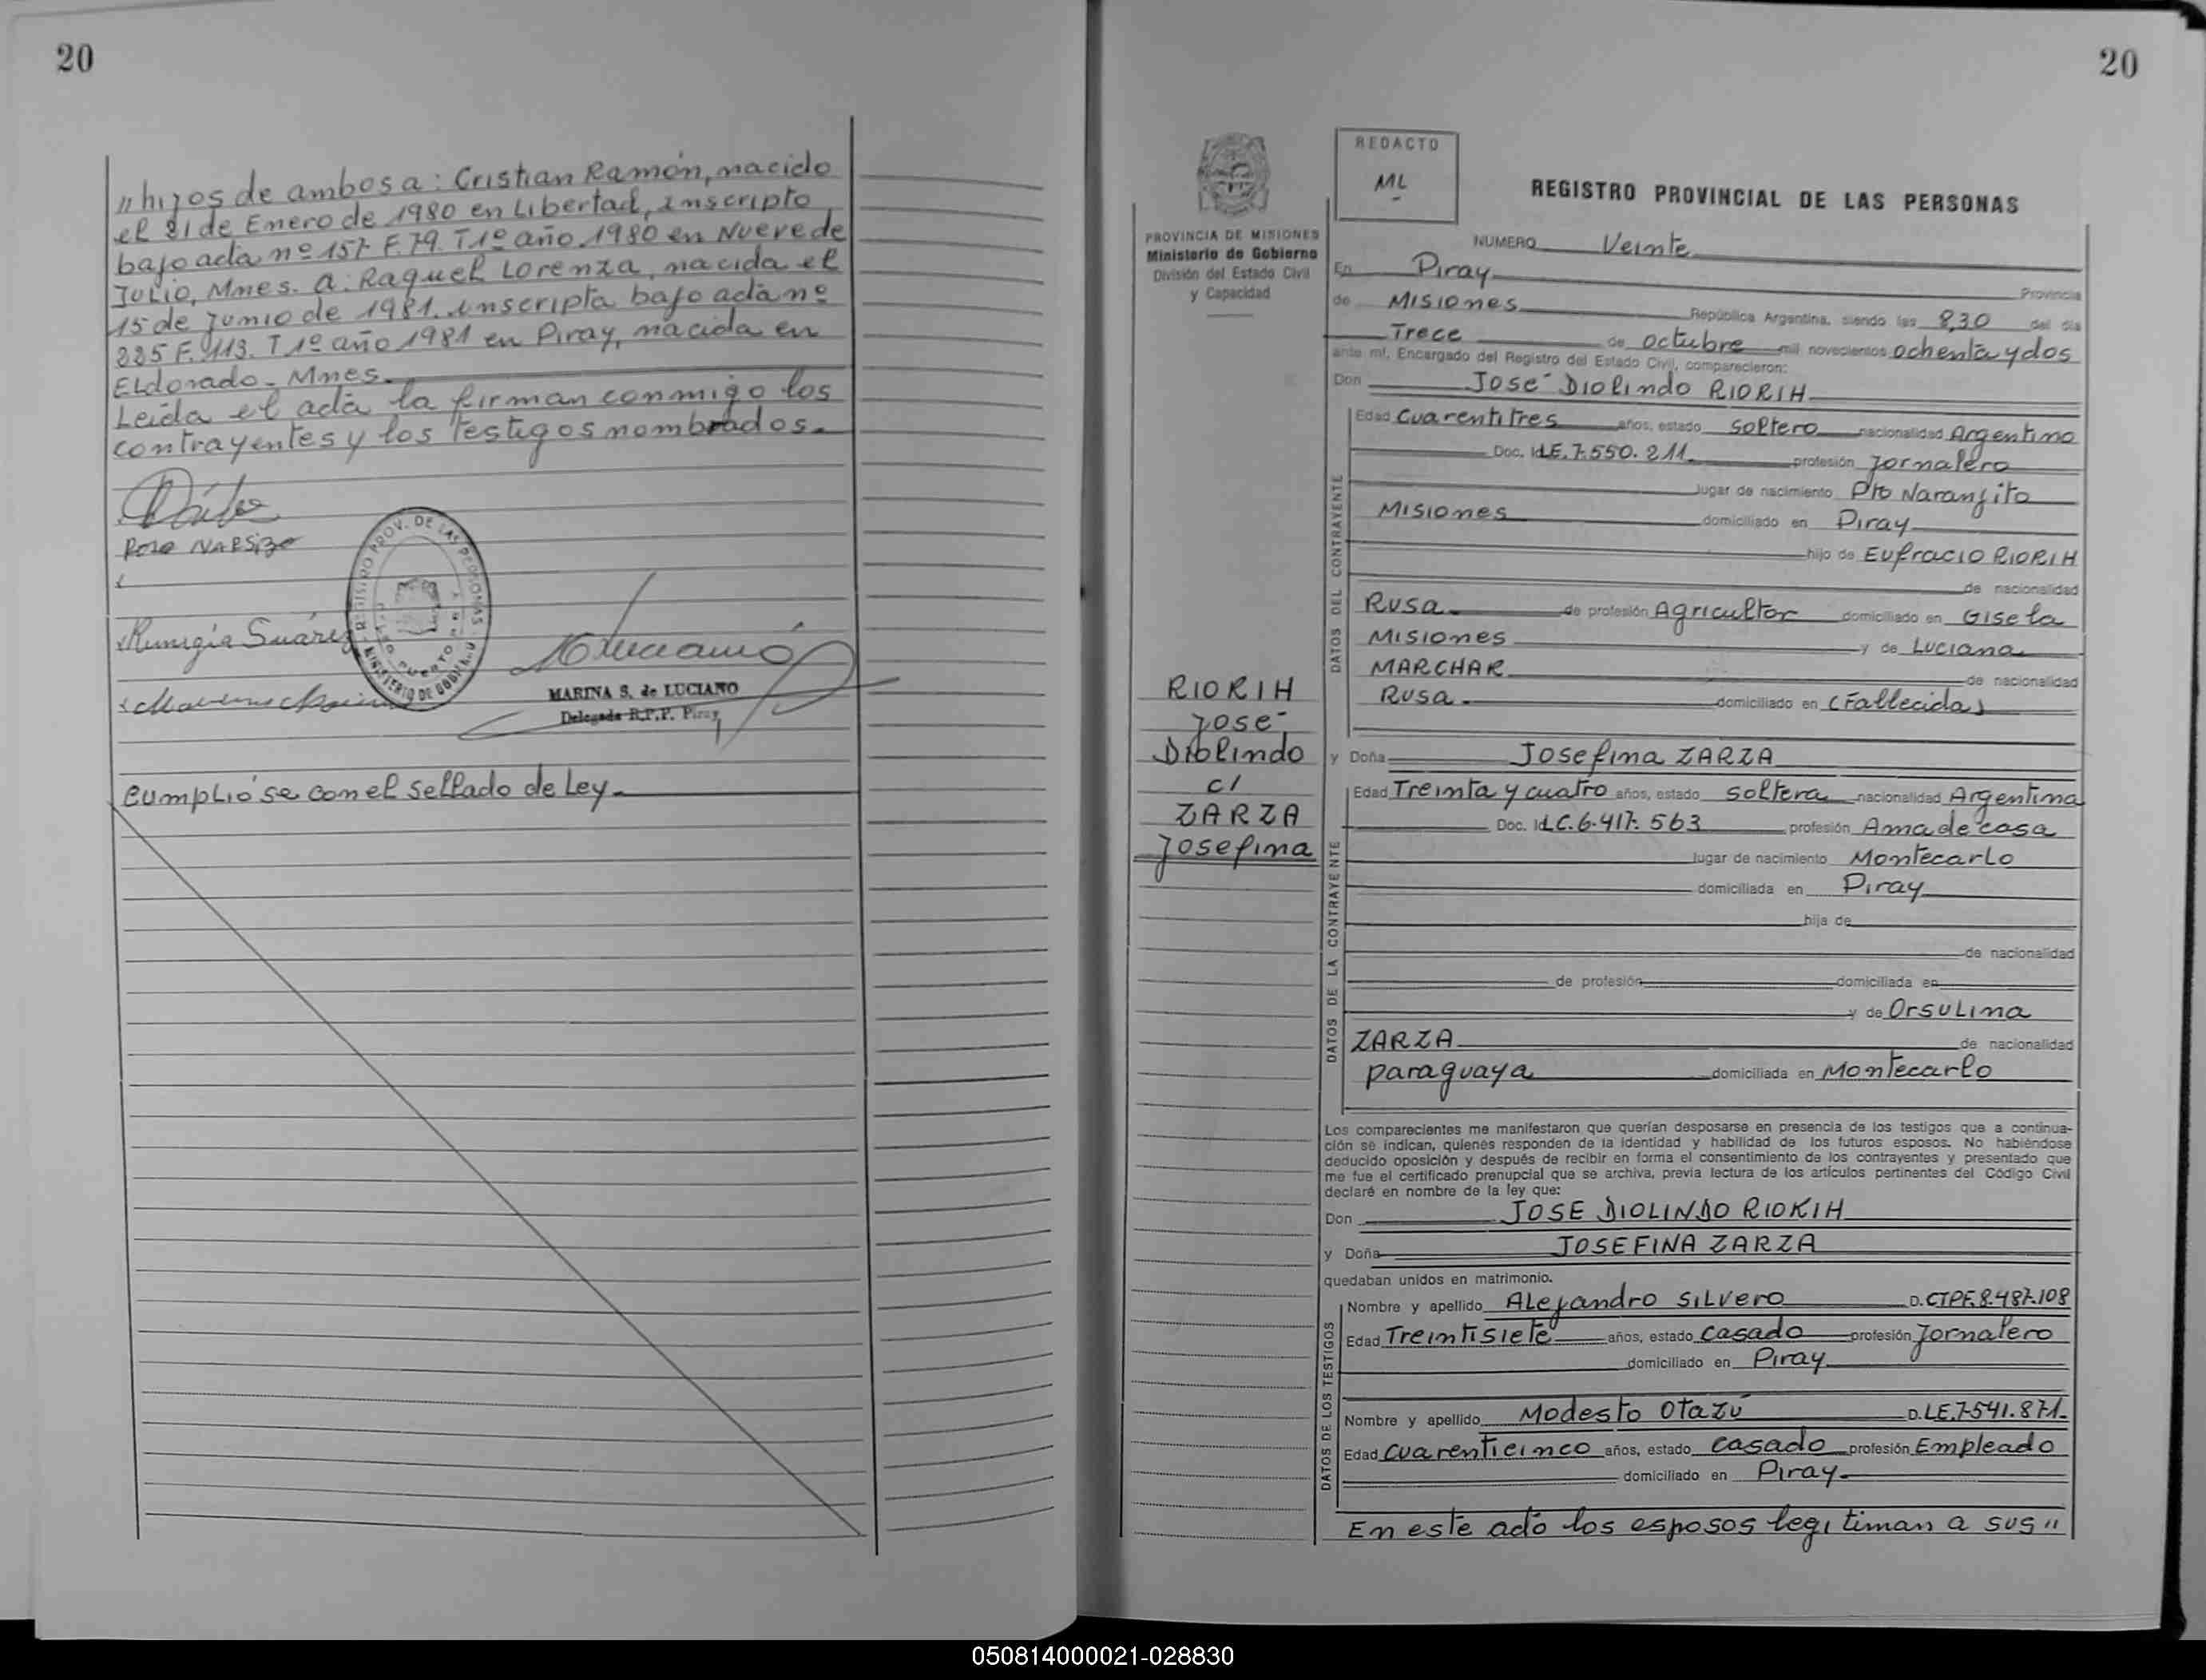 20
"hijos de ambos a: Cristian Ramón, nacido
el 21 de Enero de 1980 en Libertad, inscripto
bajo acta nº 157 F. 79. T 1º año 1980 en Nueve de
Julio, Mnes. a: Raquel Lorenza, nacida el
15 de Junio de 1981. inscripta bajo acta nº
225 F. 113. T 1º año 1981 en Piray, nacida en
ELdorado - Mnes.
Leída el acta la firman conmigo los
contrayentes y los testigos nombrados.
REGISTRO PROV. DE LAS PERSONAS
MINISTERIO DE GOBIERNO
Suárez
MARINA S. de LUCIANO
Delegada R.P.P. Piray
cumplió se con el sellado de Ley.
20
PROVINCIA DE MISIONES
Ministerio de Gobierno
División del Estado Civil
y Capacidad
RIORIH
José
Diolindo
c/
ZARZA
Josefina
REDACTO
ML
REGISTRO PROVINCIAL DE LAS PERSONAS
NUMERO Veinte
En Piray Provincia
de Misiones República Argentina, siendo las 8,30 del día
Trece de octubre mil novecientos ochenta y dos
ante mí, Encargado del Registro del Estado Civil, comparecieron:
Don José Diolindo RIORIH
DATOS DEL CONTRAYENTE
Edad cuarentitres años, estado soltero nacionalidad Argentino
Doc. Id L.E. 7.550.211 profesión Jornalero
lugar de nacimiento Pto Naranjito
Misiones domiciliado en Piray
hijo de Eufracio RIORIH
de nacionalidad
Rusa de profesión Agricultor domiciliado en Gisela
Misiones y de Luciana
MARCHAR de nacionalidad
Rusa domiciliado en (Fallecida)
y Doña Josefina ZARZA
DATOS DE LA CONTRAYENTE
Edad Treinta y cuatro años, estado soltera nacionalidad Argentina
Doc. Id L.C. 6.417.563 profesión Ama de casa
lugar de nacimiento Montecarlo
domiciliada en Piray
hija de
de nacionalidad
de profesión domiciliada en
y de Orsulina
ZARZA de nacionalidad
paraguaya domiciliada en Montecarlo
Los comparecientes me manifestaron que querían desposarse en presencia de los testigos que a continua-
ción se indican, quienes responden de la identidad y habilidad de los futuros esposos. No habiéndose
deducido oposición y después de recibir en forma el consentimiento de los contrayentes y presentado que
me fue el certificado prenupcial que se archiva, previa lectura de los artículos pertinentes del Código Civil
declaré en nombre de la ley que:
Don JOSE DIOLINDO RIORIH
y Doña JOSEFINA ZARZA
quedaban unidos en matrimonio.
DATOS DE LOS TESTIGOS
Nombre y apellido Alejandro Silvero D. CIPF. 8.487.108
Edad Treintisiete años, estado casado profesión Jornalero
domiciliado en Piray
Nombre y apellido Modesto Otazú D. LE. 7.541.871.
Edad cuarenticinco años, estado casado profesión Empleado
domiciliado en Piray
En este acto los esposos legitiman a sus "
050814000021-028830